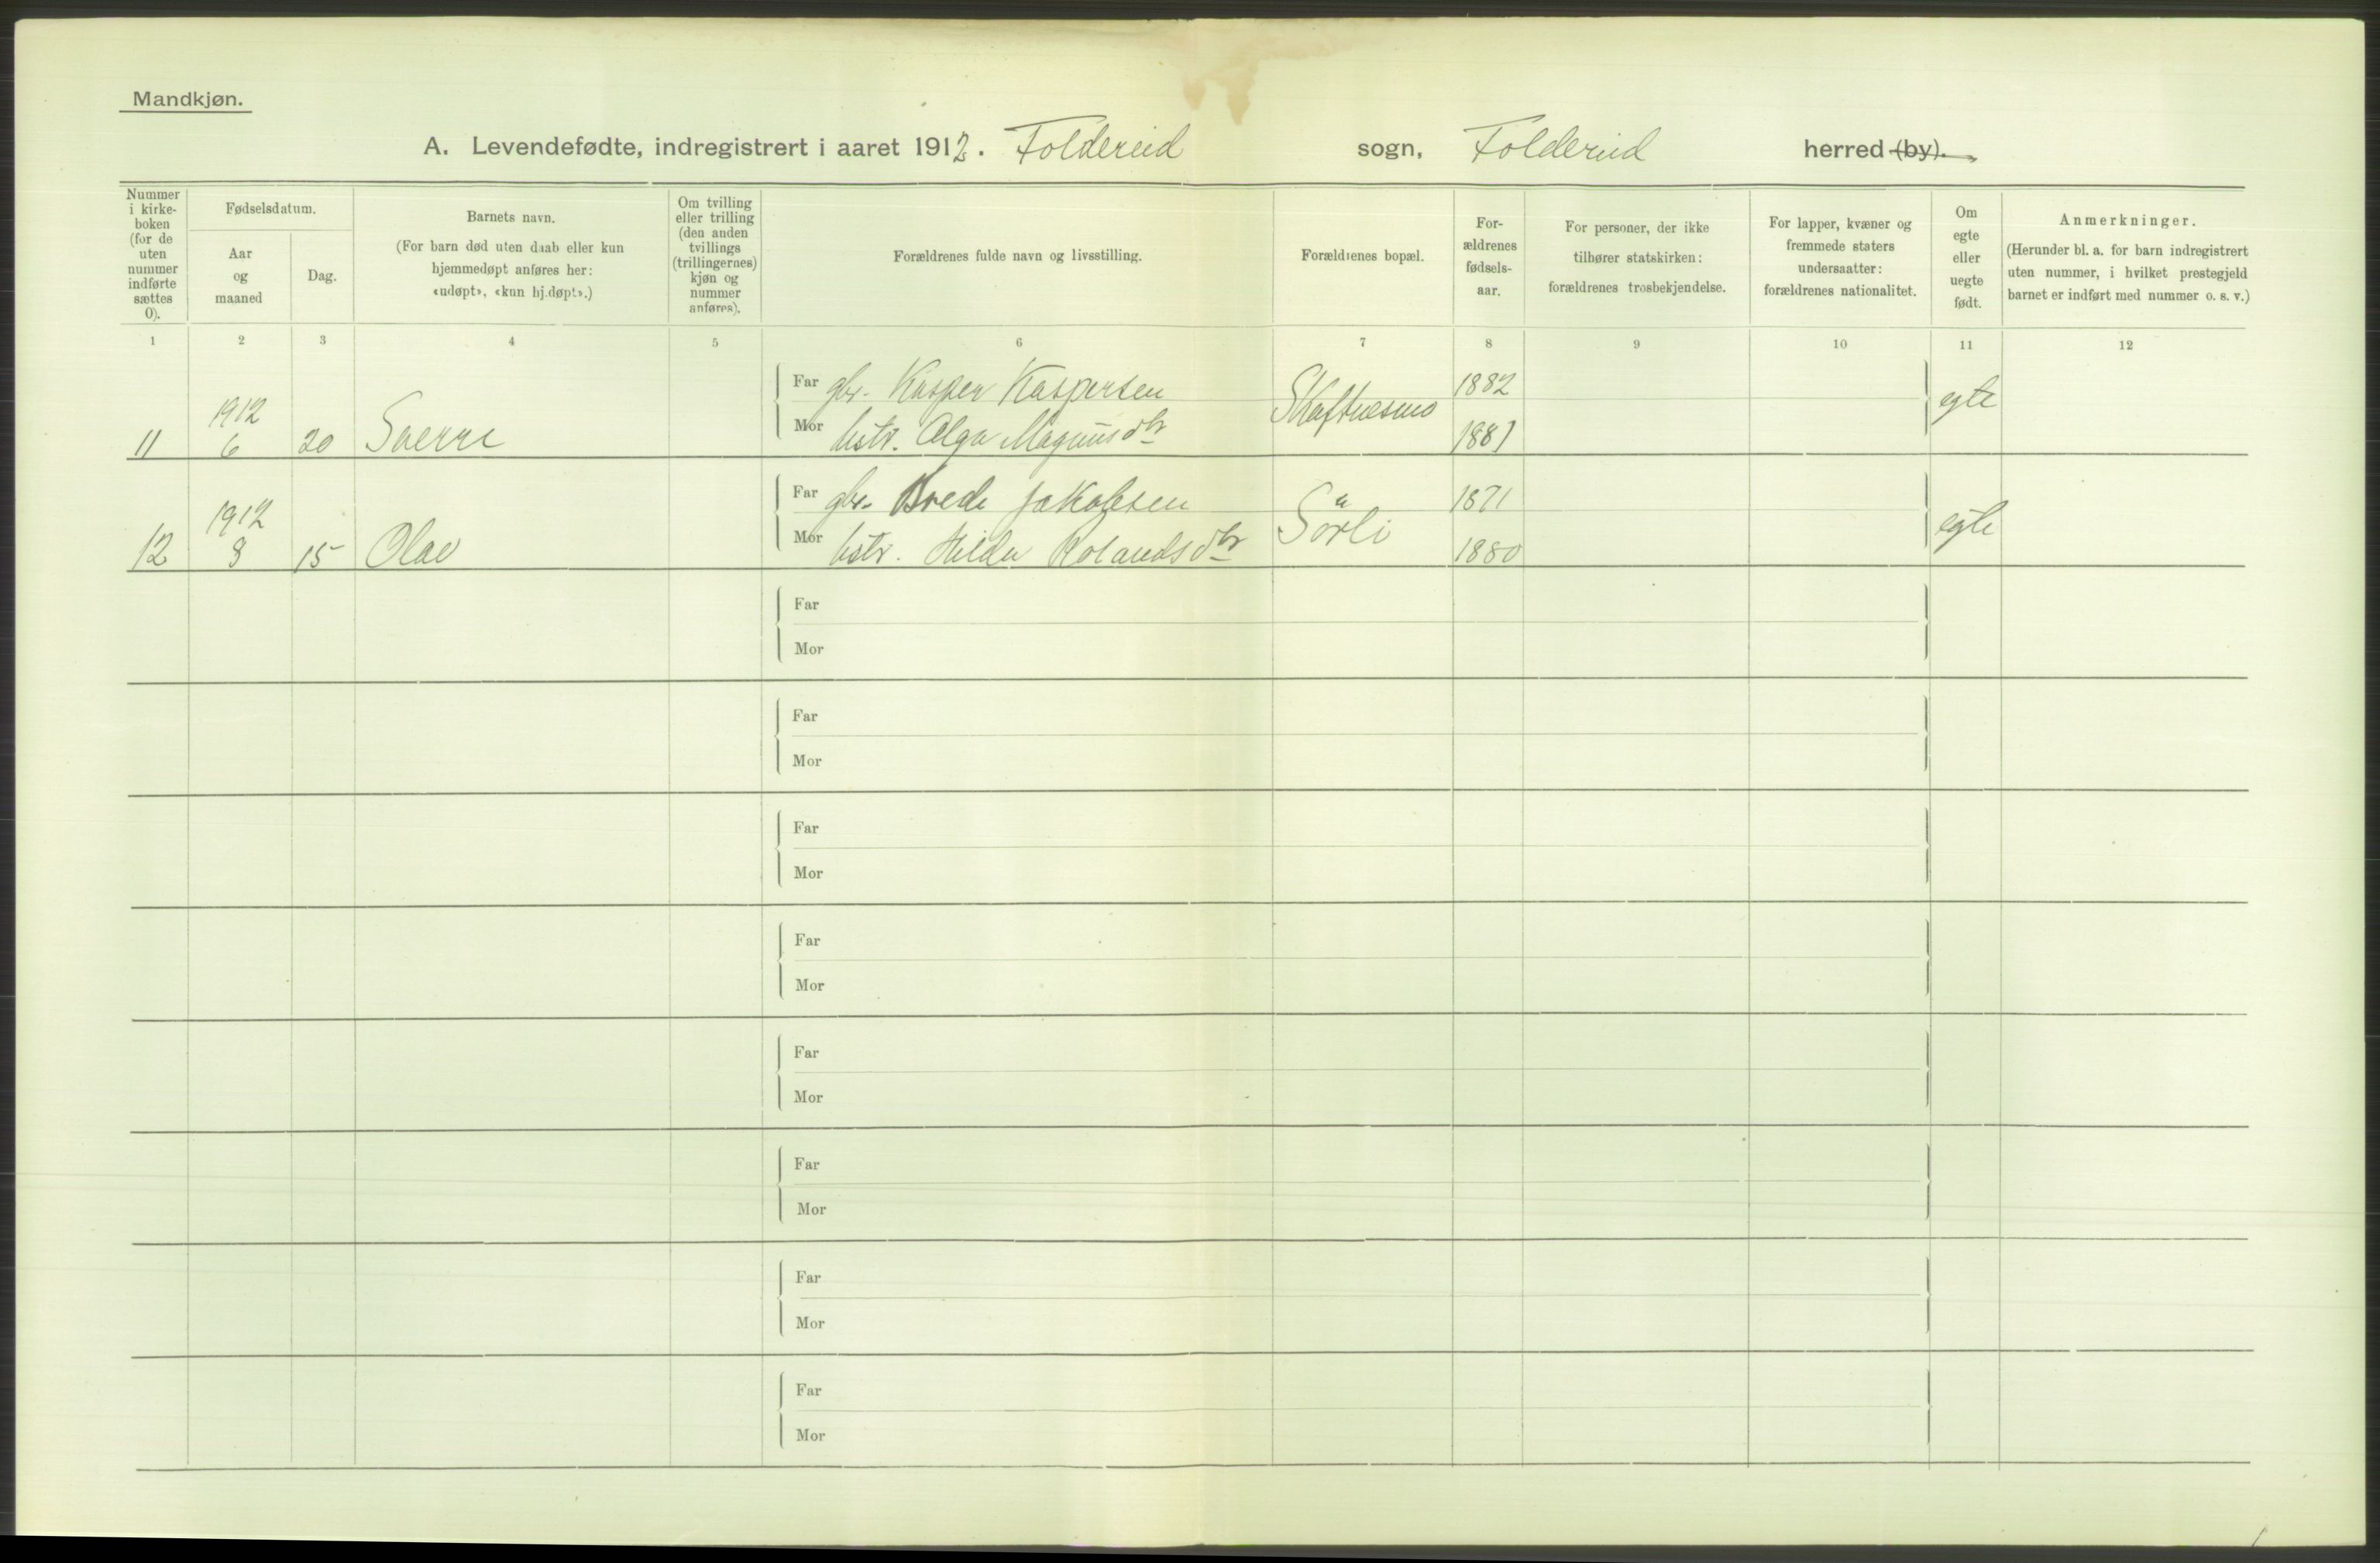 Mandkjøn.
A. Levendefødte, indregistrert i aaret 1912. Foldereid sogn, Foldereid herred (by).
Nummer i kirke-boken (for de uten nummer indførte sættes 0).
Fødselsdatum.
Aar og maaned
Dag.
Barnets navn.
(For barn død uten daab eller kun hjemmedøpt anføres her: «udøpt», «kun hj.døpt».)
Om tvilling eller trilling (den anden tvillings (trillingernes) kjøn og nummer anføres).
Forældrenes fulde navn og livsstilling.
Forældrenes bopæl.
For-ældrenes fødsels-aar.
For personer, der ikke tilhører statskirken: forældrenes trosbekjendelse.
For lapper, kvæner og fremmede staters undersaatter: forældrenes nationalitet.
Om egte eller uegte født.
Anmerkninger.
(Herunder bl. a. for barn indregistrert uten nummer, i hvilket prestegjeld barnet er indført med nummer o. s. v.)
1 2 3 4 5 6 7 8 9 10 11 12
Far gbr. Kasper Kaspersen 1882
11 1912 6 20 Sverre Skaftnesmo egte
Mor hstr. Olga Magnusdtr 1881
Far gbr. Brede Jakobsen 1871
12 1912 8 15 Olav Sörli egte
Mor hstr. Hilda Rolandsdtr 1880
Far
Mor
Far
Mor
Far
Mor
Far
Mor
Far
Mor
Far
Mor
Far
Mor
Far
Mor